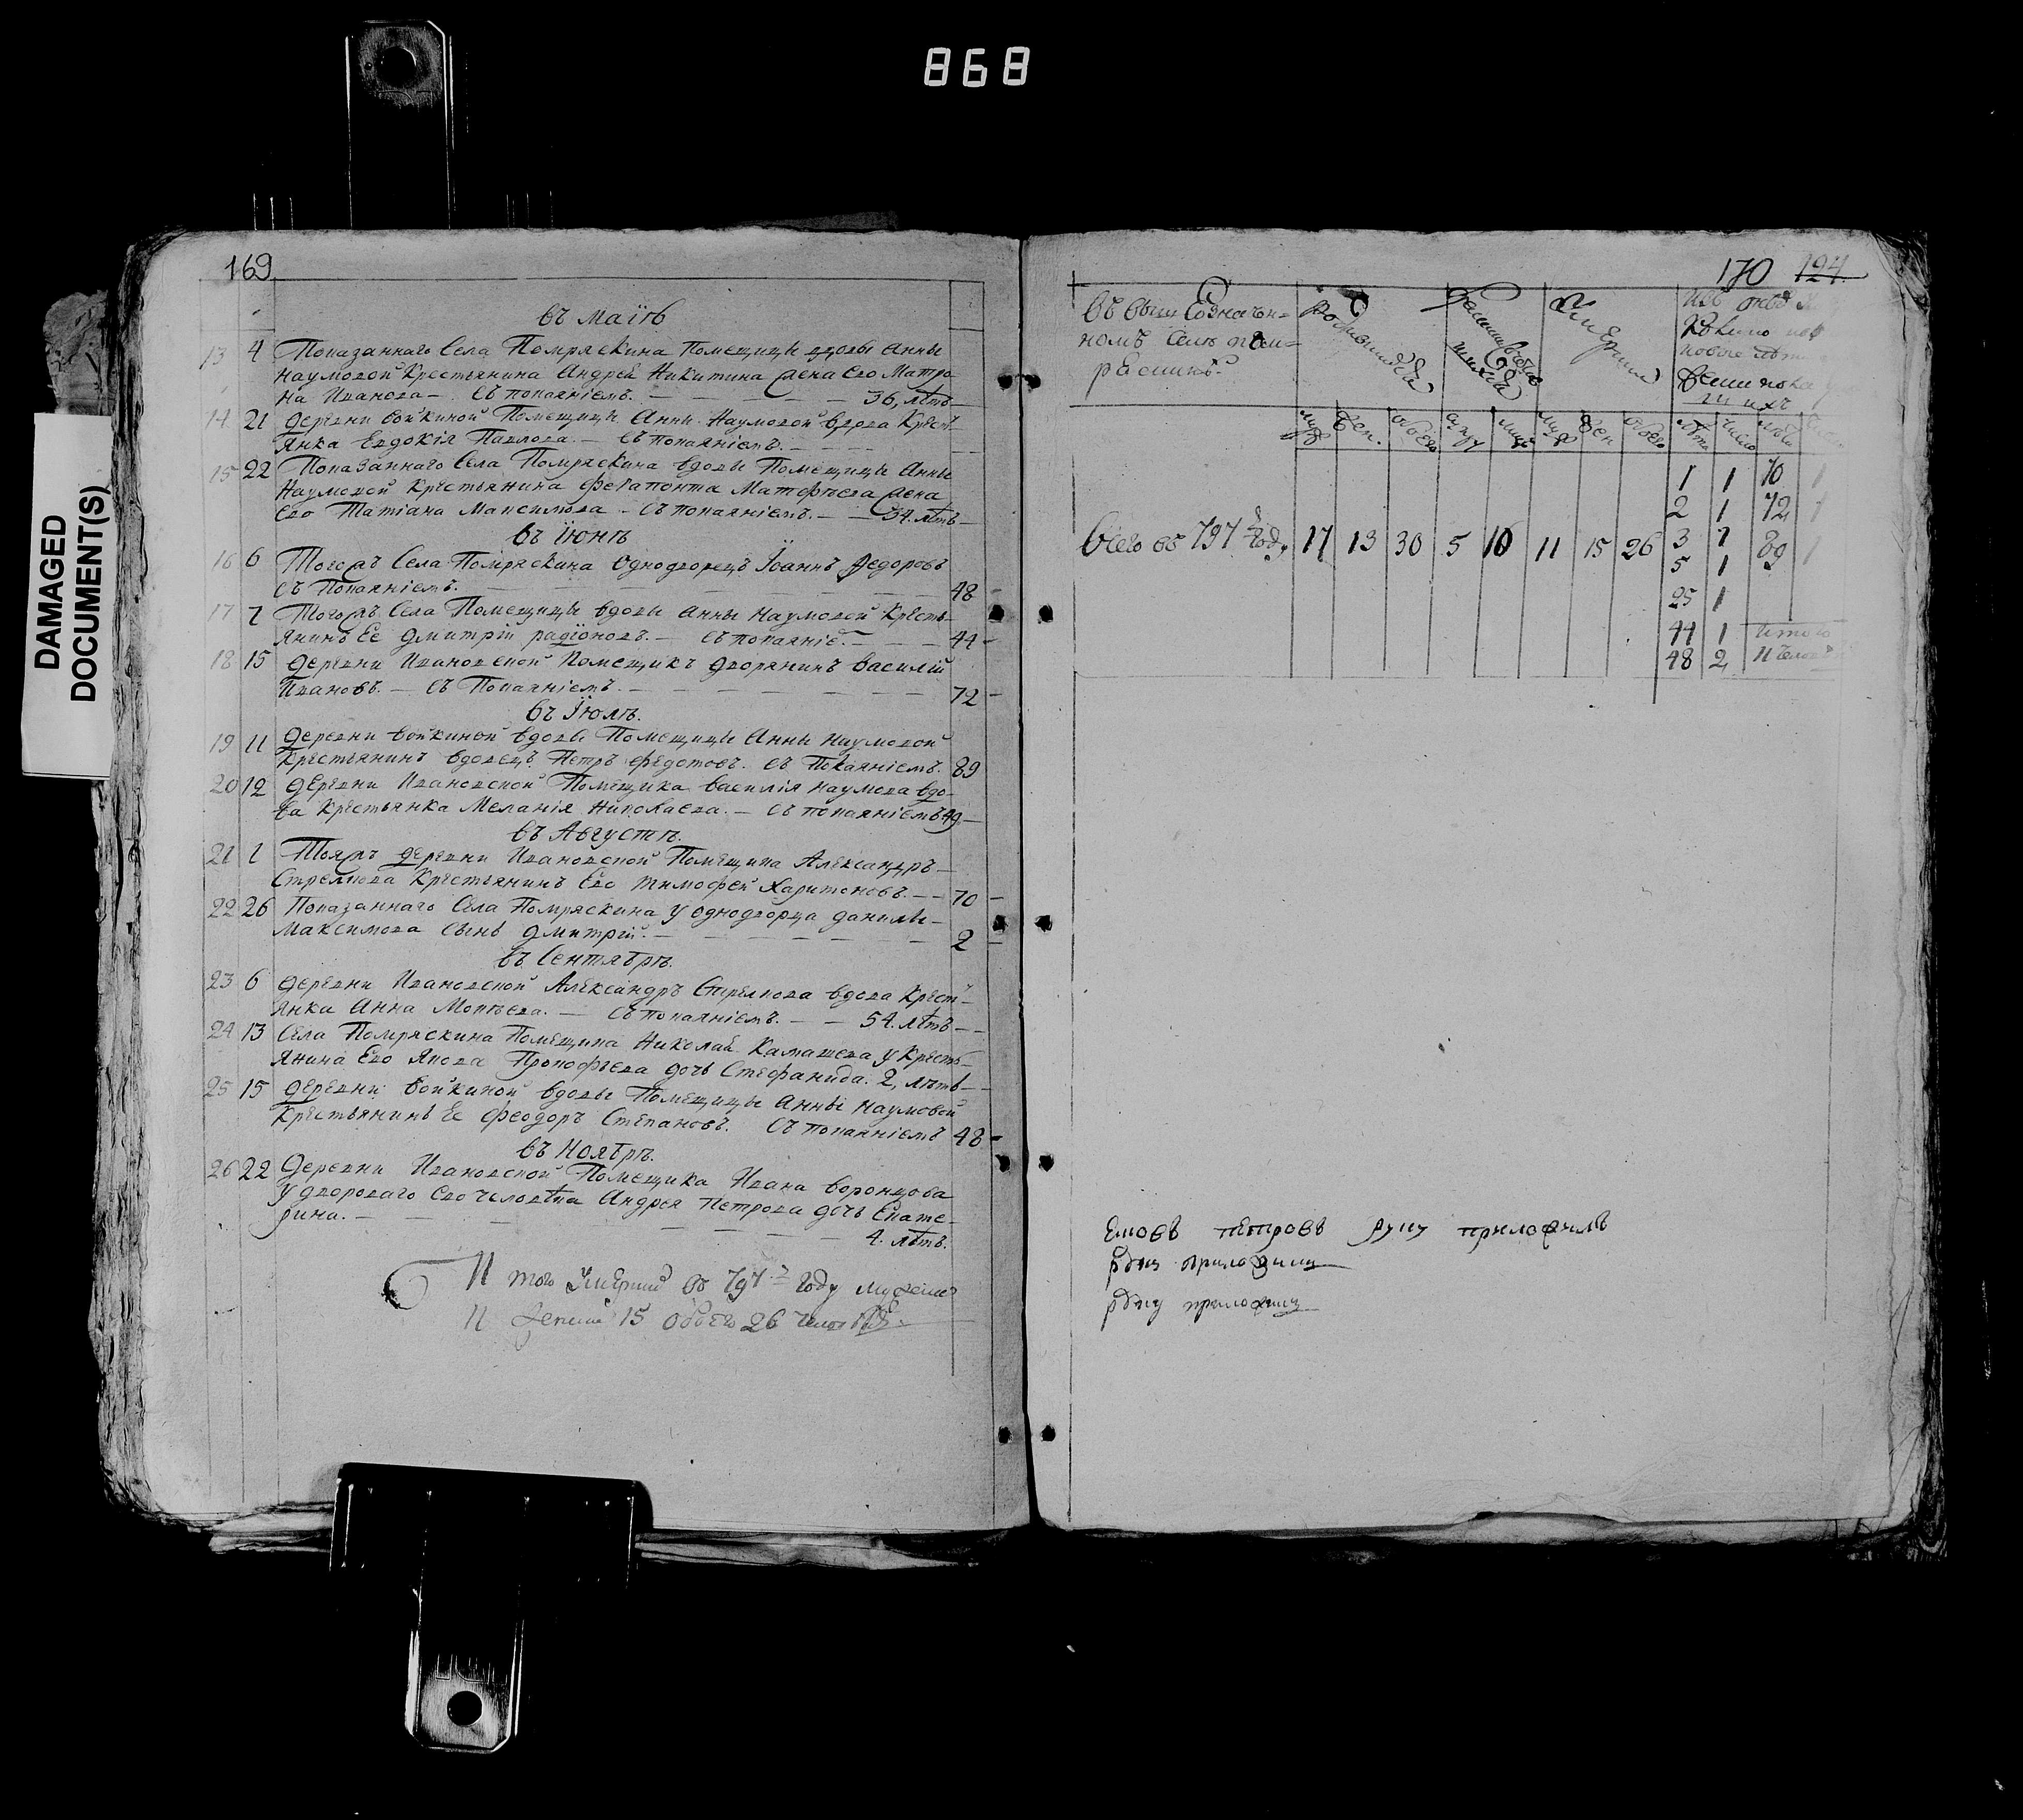 868
DAMAGED
DOCUMENT(S)
169
въ маїѣ
13 4 Показаннаго Села Помряскина Помещицы вдовы Анны
Наумовой Крестьянина Андрея Никитина жена Ево Матро
на Иванова - съ покаяніемъ. 36, лѣтъ
14 21 деревни войкиной Помещицы Анны Наумовой вдова Кресть
янка Евдокія Павлова. — съ покаяніемъ.
15 22 Показаннаго Села Помряскина вдовы Помещицы Анны
Наумовой Крестьянина ферапонта Матфѣева жена
Ево Татіана Максимова - съ покаяніемъ. — 54. лѣтъ
въ Їюнѣ
16 6 Тогожъ Села Помряскина Однодворецъ Їоаннъ Федоровъ
съ Покаяніемъ. 48
17 7 Тогожъ Села Помещицы вдовы Анны Наумовой Кресть
янинъ Ее Дмитрїй радїоновъ. — съ покаяніе. 44
18 15 деревни Ивановской Помещикъ дворянинъ Василїй
Ивановъ. — съ Покаяніемъ. 72
въ Їюлѣ.
19 11 деревни войкиной вдовы Помещицы Анны Наумовой
Крестьянинъ вдовецъ Петръ Федотовъ. съ Покаяніемъ. 89
20 12 деревни Ивановской Помещика Василія Наумова вдо-
ва крестьянка Меланія Николаева. — съ покаяніемъ 49
въ Августѣ.
21 1 Тояжъ деревни Ивановской Помещика Александръ
Стрелкова Крестьянинъ Ево тимофей Харитоновъ. — 70
22 26 Показаннаго Села Помряскина у однодворца данилы
Максимова сынъ дмитрїй. 2
въ Сентябрѣ.
23 6 деревни Ивановской Александръ Стрелкова вдова Крест-
янка Анна Мокѣева. — съ покаяніемъ. — 54. лѣтъ
24 13 Села Помряскина Помещика Николай Камашева у Кресть-
янина Ево Якова Прокофьева дочь Стефанида. 2, лѣтъ
25 15 деревни войкиной вдовы Помещицы Анны Наумовой
Крестьянинъ Ее Феодоръ Степановъ. съ покаяніемъ 48
въ Ноябрѣ.
26 22 Деревни Ивановской Помещика Ивана Воронцова
у двороваго Ево человѣка Андрея Петрова дочь Екате-
рина. 4. лѣтъ.
Итого умершихъ въ 797 году мужеска
11 женска 15 обоего 26
170 124
въ
номъ селѣ пом-
умершихъ
муж жен. обоего муж жен обоего лѣта число
1 1 70 1
2 1 72 1
Всего въ 797 году 17 13 30 5 10 11 15 26 3 1 89 1
5 1
25 1
44 1 Итого
48 2
петровъ руку приложилъ
руку приложилъ
руку приложилъ